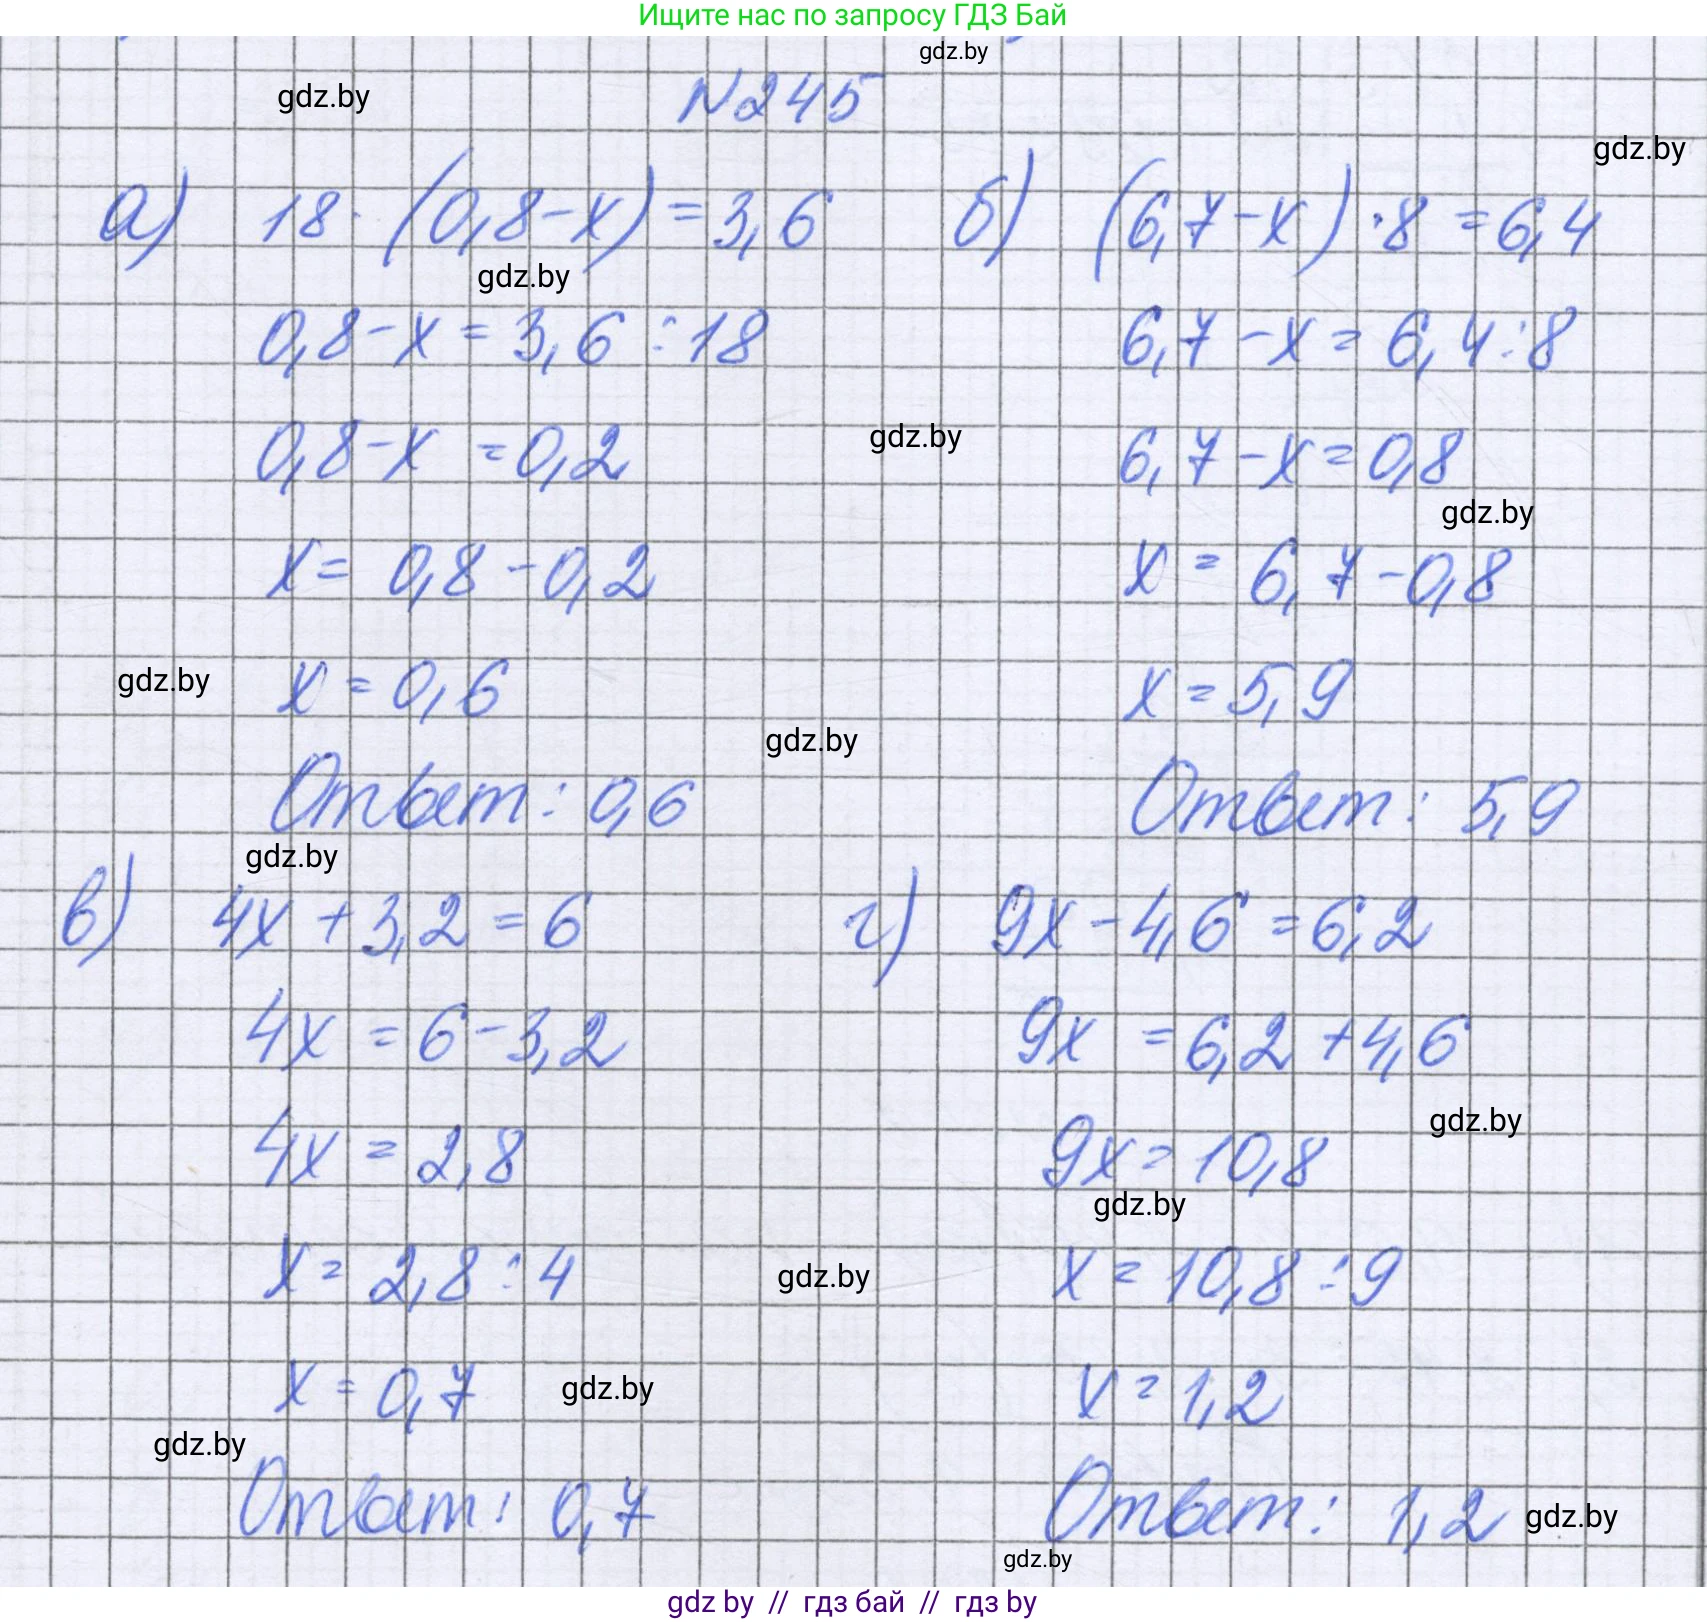 Ищите нас по запросу ГДЗ Бай
gdz.by
N245
gdz.by
gdz.by
а) 18·(0,8-x)=3,6
gdz.by
0,8-x=3,6:18
0,8-x=0,2
x=0,8-0,2
gdz.by
x=0,6
Ответ: 0,6
gdz.by
б) (6,7-x)·8=6,4
6,7-x=6,4:8
gdz.by
6,7-x=0,8
gdz.by
x=6,7-0,8
x=5,9
gdz.by
Ответ: 5,9
в) 4x+3,2=6
4x=6-3,2
4x=2,8
x=2,8:4
gdz.by
x=0,7
gdz.by
gdz.by
Ответ: 0,7
г) 9x-4,6=6,2
9x=6,2+4,6
gdz.by
9x=10,8
gdz.by
x=10,8:9
x=1,2
Ответ: 1,2
gdz.by
gdz.by
gdz by // гдз бай // гдз by